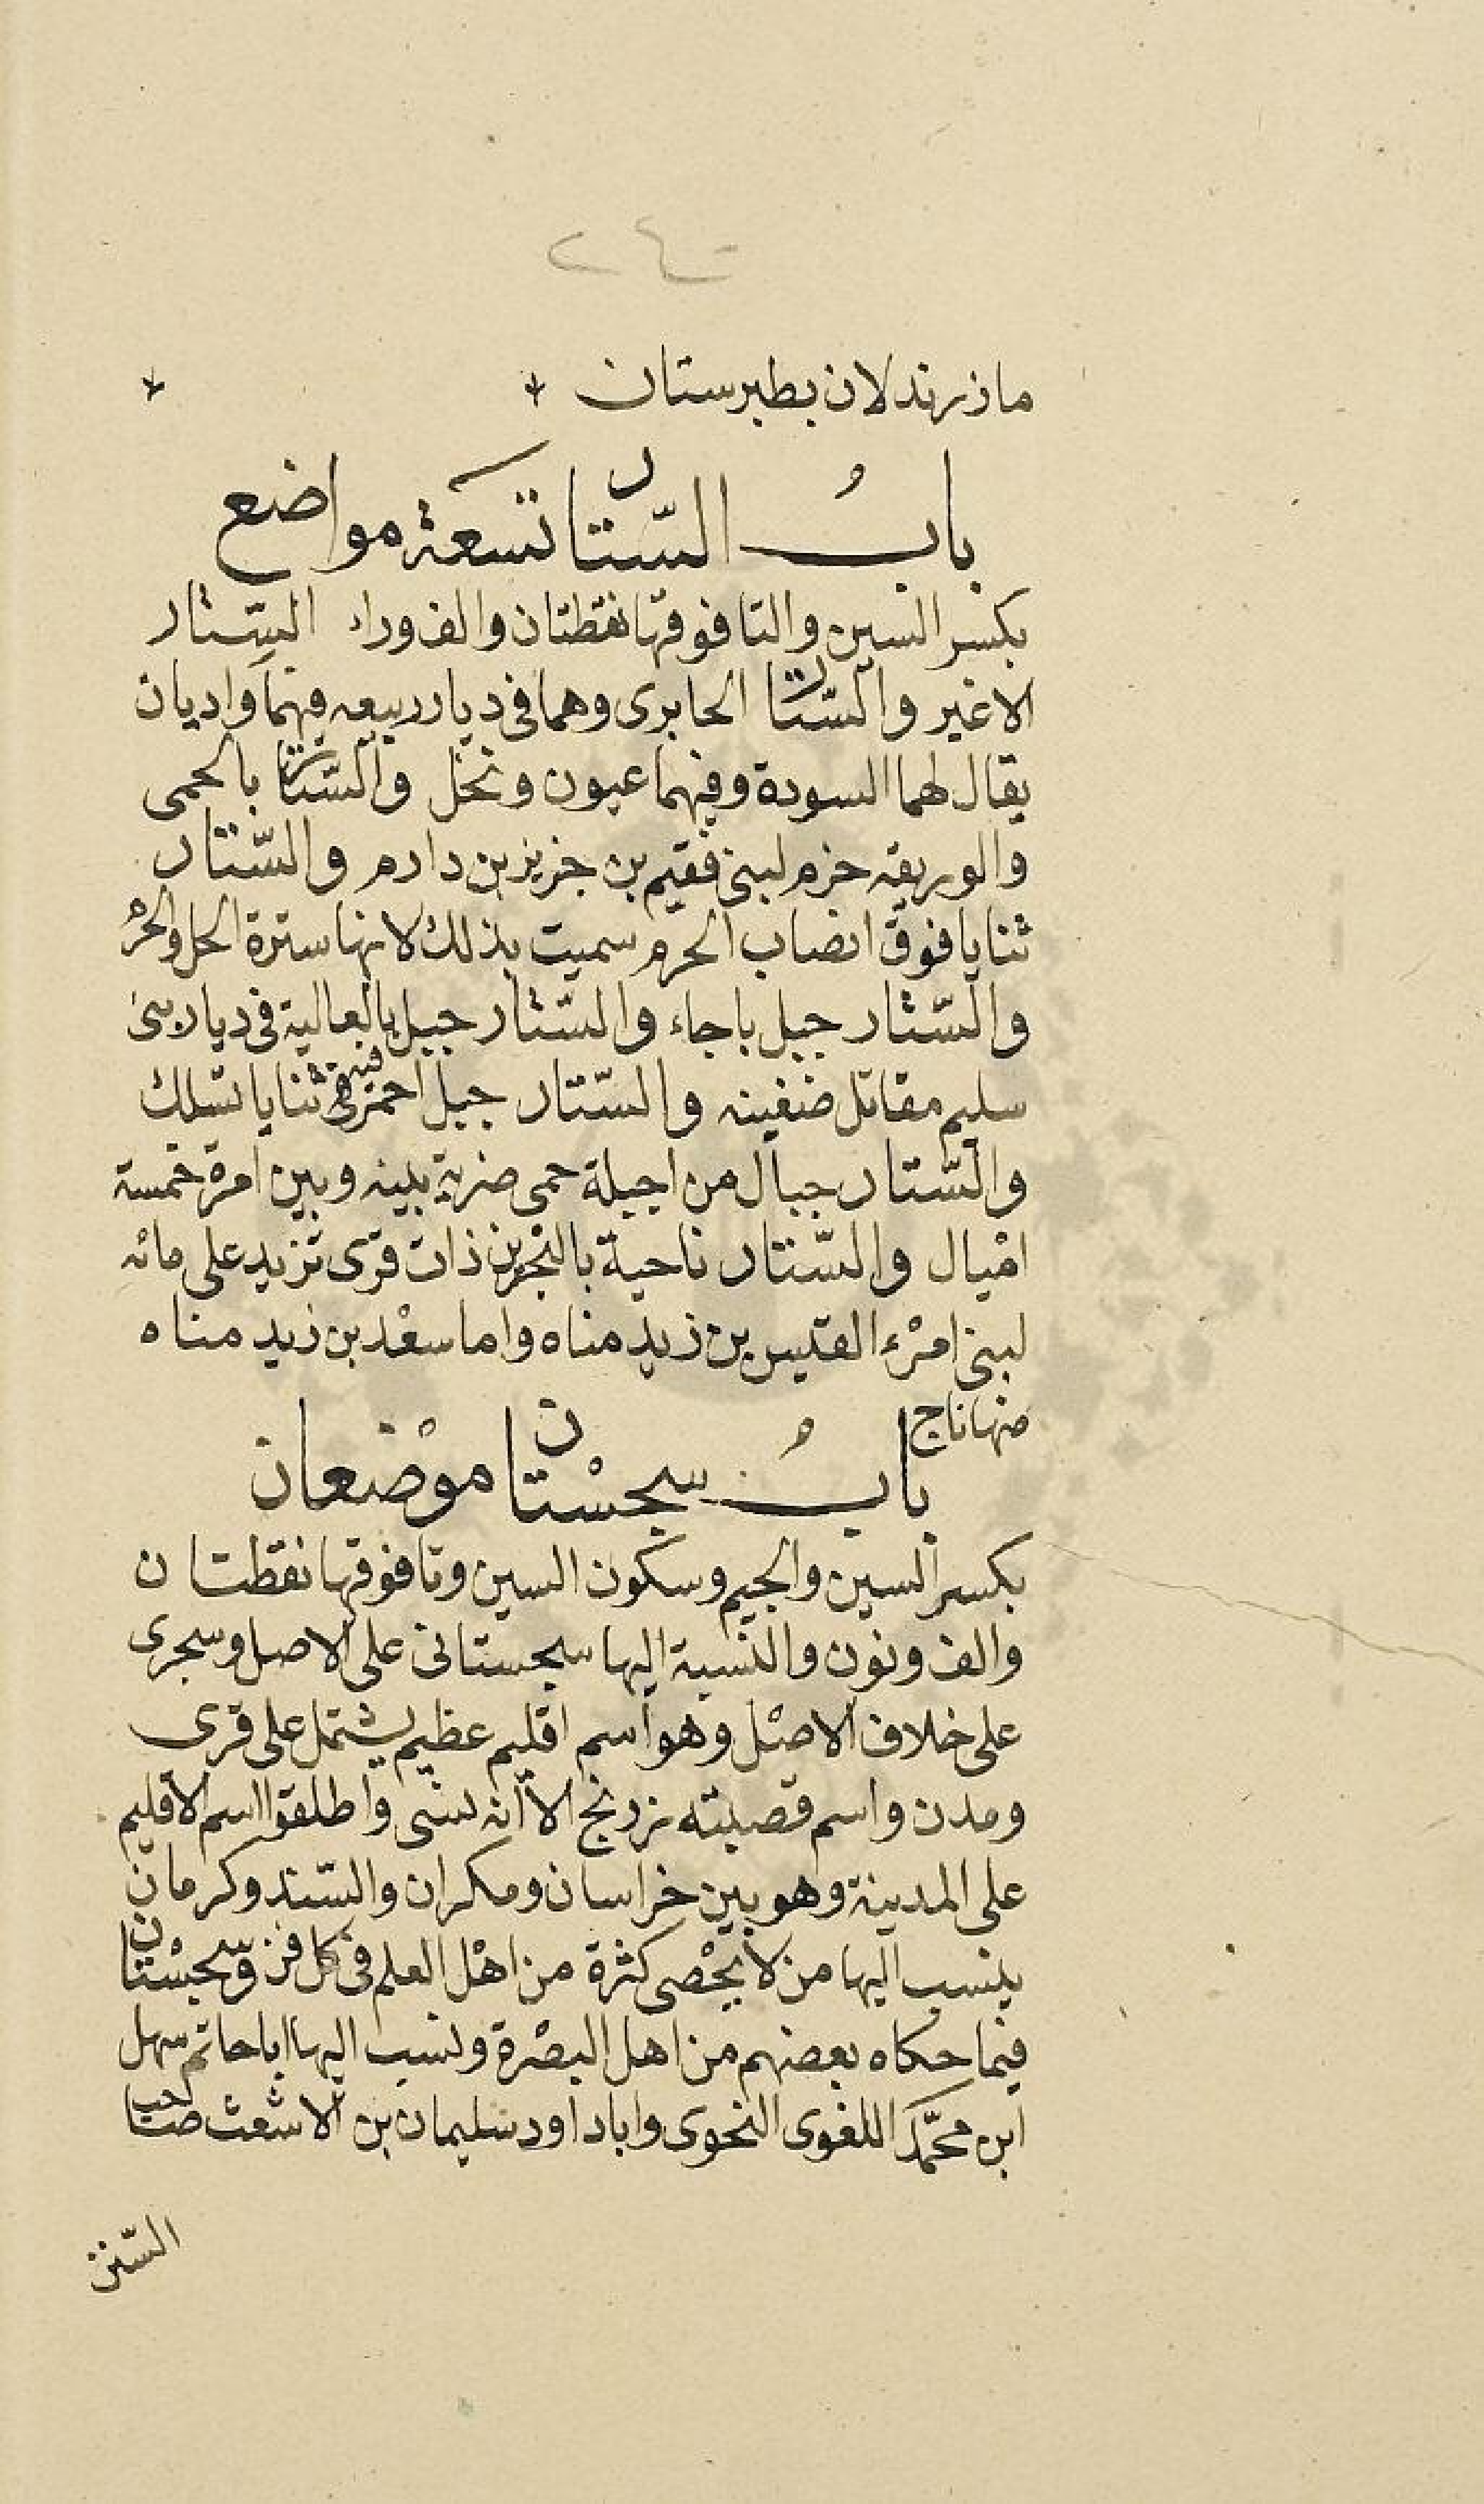 ٢٤
ماذرندلان بطبرستان
بابُ السّتار تسعة مواضع
بكسر السين والتا فوقها نقطتان والف وراء السّتار
الاغبر والسّتار الحابرى وهما فى ديار ربيعه فيهما واديان
يقال لهما السودة وفيهما عيون ونخل والسّتار بالحمى
والوريقه حزم لبنى فقيم بن جرير بن دارم والسّتار
ثنايا فوق انصاب الحرم سميت بذلك لانها سترة الحل والحرم
والسّتار جبل باجاء والسّتار جبل بالعالية فى ديار بنى
سليم مقابل ضفينه والسّتار جبل احمر فيه ثنايا تسلك
والسّتار جبال من اجبلة حمى ضرية بينه وبين امرة خمسة
اميال والسّتار ناحية بالبحرين ذات قرى تزيد على مائه
لبنى امرْء القيس بن زيد مناه واما سعْد بن زيد مناه
منها ناج
بابُ سجسْتان موْضعان
بكسر السين والجيم وسكون السين وتا فوقها نقطتان
والف ونون والنسبة اليها سجستانى على الاصل وسجزى
على خلاف الاصْل وهو اسم اقليم عظيم يشتمل على قرى
ومدن واسم قصبته زرنج الا انه نسى واطلقوا اسم الاقليم
على المدينة وهو بين خراسان ومكران والسّند وكرمان
ينسب اليها من لا يحْصى كثرة من اهْل العلم فى كل فن وسجسْتان
فيما حكاه بعضهم من اهل البصْرة ونسب اليها ابا حاتم سهل
ابن محمّد اللغوى النحوى وابا داود سليمان بن الاشعث صاحب
السّنن